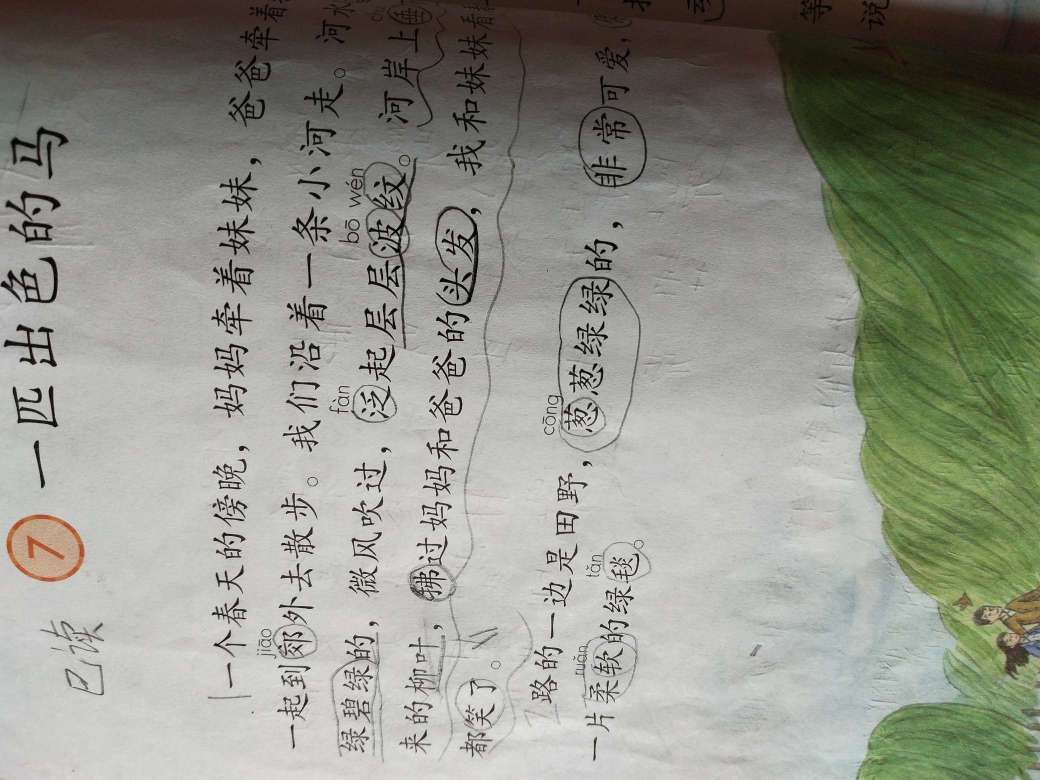 已读
7 一匹出色的马
一个春天的傍晚，妈妈牵着妹妹，爸爸牵着
jiāo
一起到郊外去散步。我们沿着一条小河走。河水
fàn bō wén
绿碧绿的，微风吹过，泛起层层波纹。河岸上垂
来的柳叶，拂过妈妈和爸爸的头发，我和妹妹看
都笑了。
cōng
路的一边是田野，葱葱绿绿的，非常可爱，
ruǎn tǎn
一片柔软的绿毯。
等
说